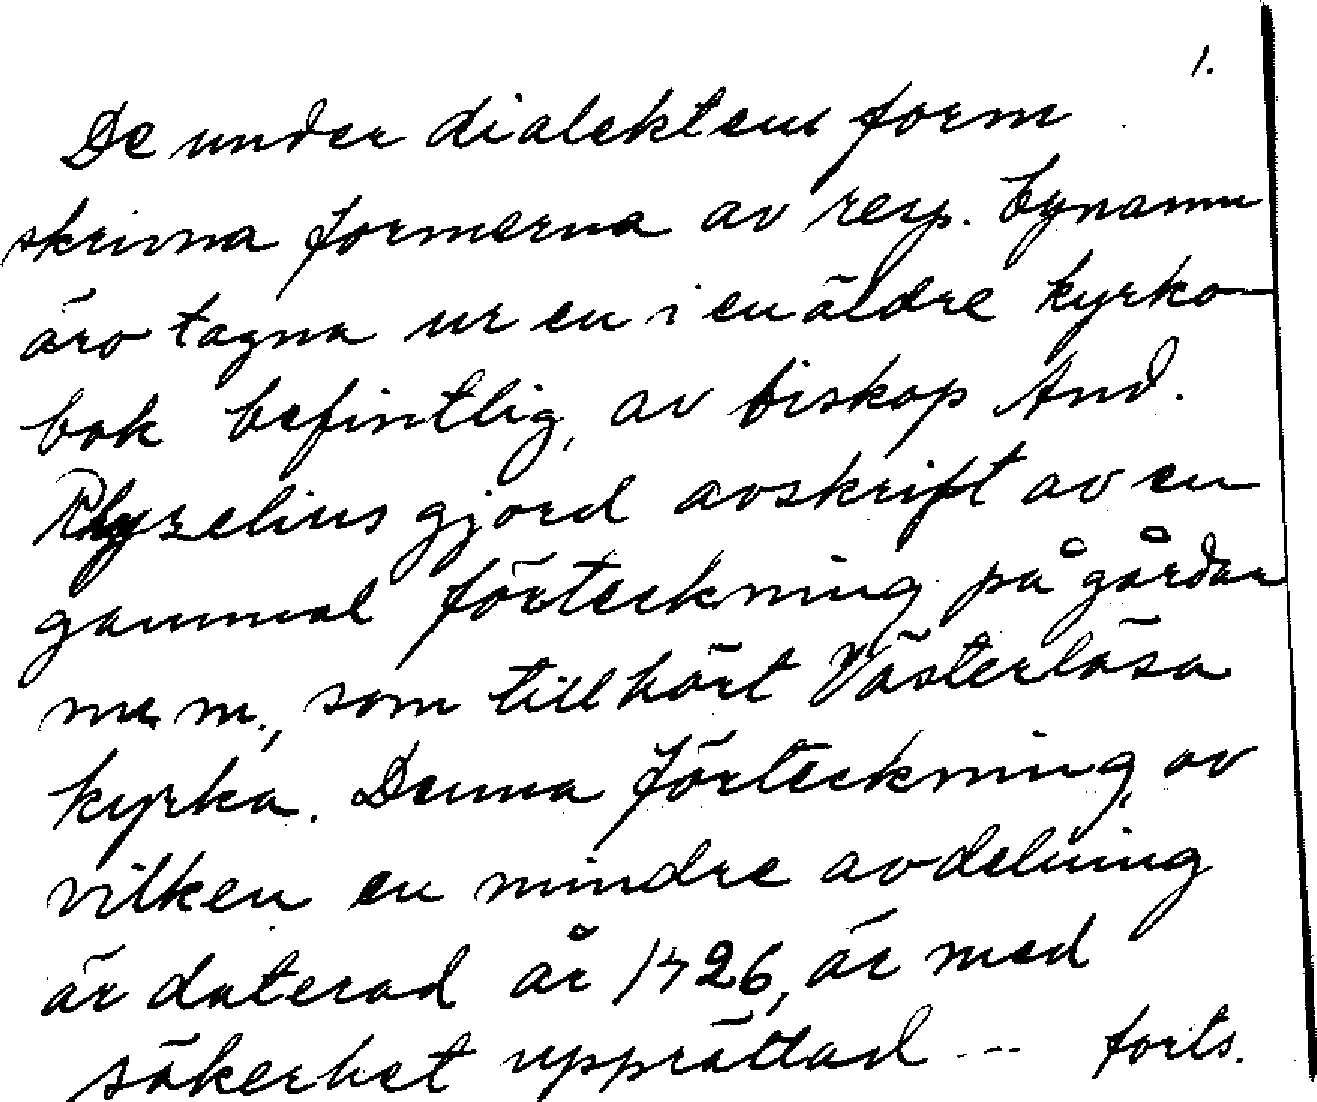 1.
De under dialektens form
skrivna formerna av resp. bynamn
äro tagna ur en i en äldre kyrko-
bok befintlig, av biskop And.
Rhyzelius gjord avskrift av en
gammal förteckning på gårdar
m. m., som tillhört Västerlösa
kyrka. Denna förteckning, av
vilken en mindre avdelning
är daterad år 1426, är med
säkerhet upprättad --- forts.